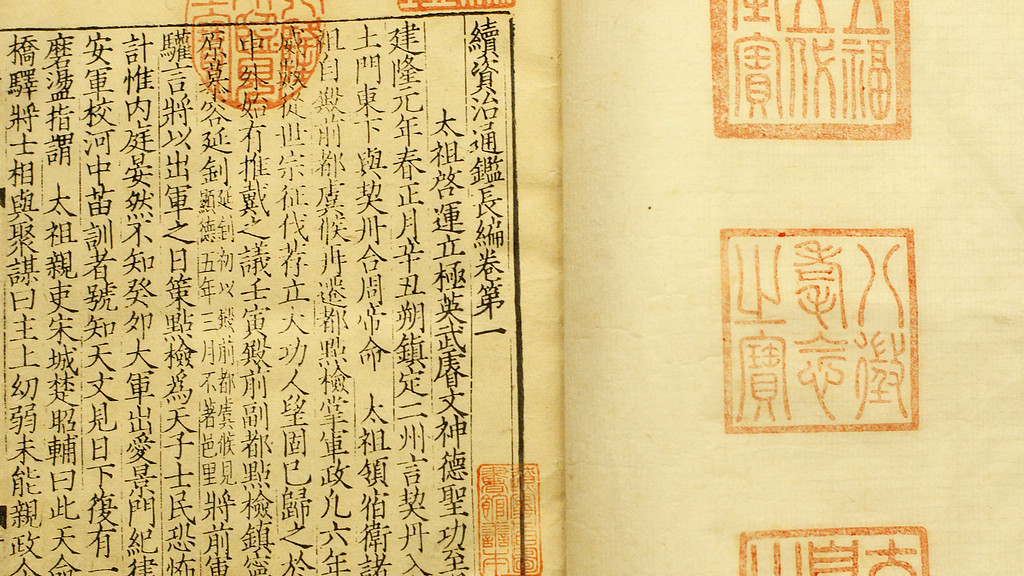 五福
五代
堂寶
八徵
耄念
之寶
續資治通鑑長編卷第一
太祖啓運立極英武睿文神德聖功至
建隆元年春正月辛丑朔鎮定二州言契丹入
土門東下與契丹合周帝命 太祖領宿衛諸
祖自殿前都虞候再遷都點檢掌軍政凡六年
數從世宗征伐荐立大功人望固已歸之於
中外始有推戴之議壬寅殿前副都點檢鎮寧
慕容延釗延釗初以殿前都虞候見顯德五年三月不著邑里將前軍
驩言將以出軍之日策點檢為天子士民恐怖
計惟内庭晏然不知癸卯大軍出愛景門紀律
安軍校河中苗訓者號知天文見日下復有一
磨盪指謂 太祖親吏宋城楚昭輔曰此天命
橋驛將士相與聚謀曰主上幼弱未能親政今